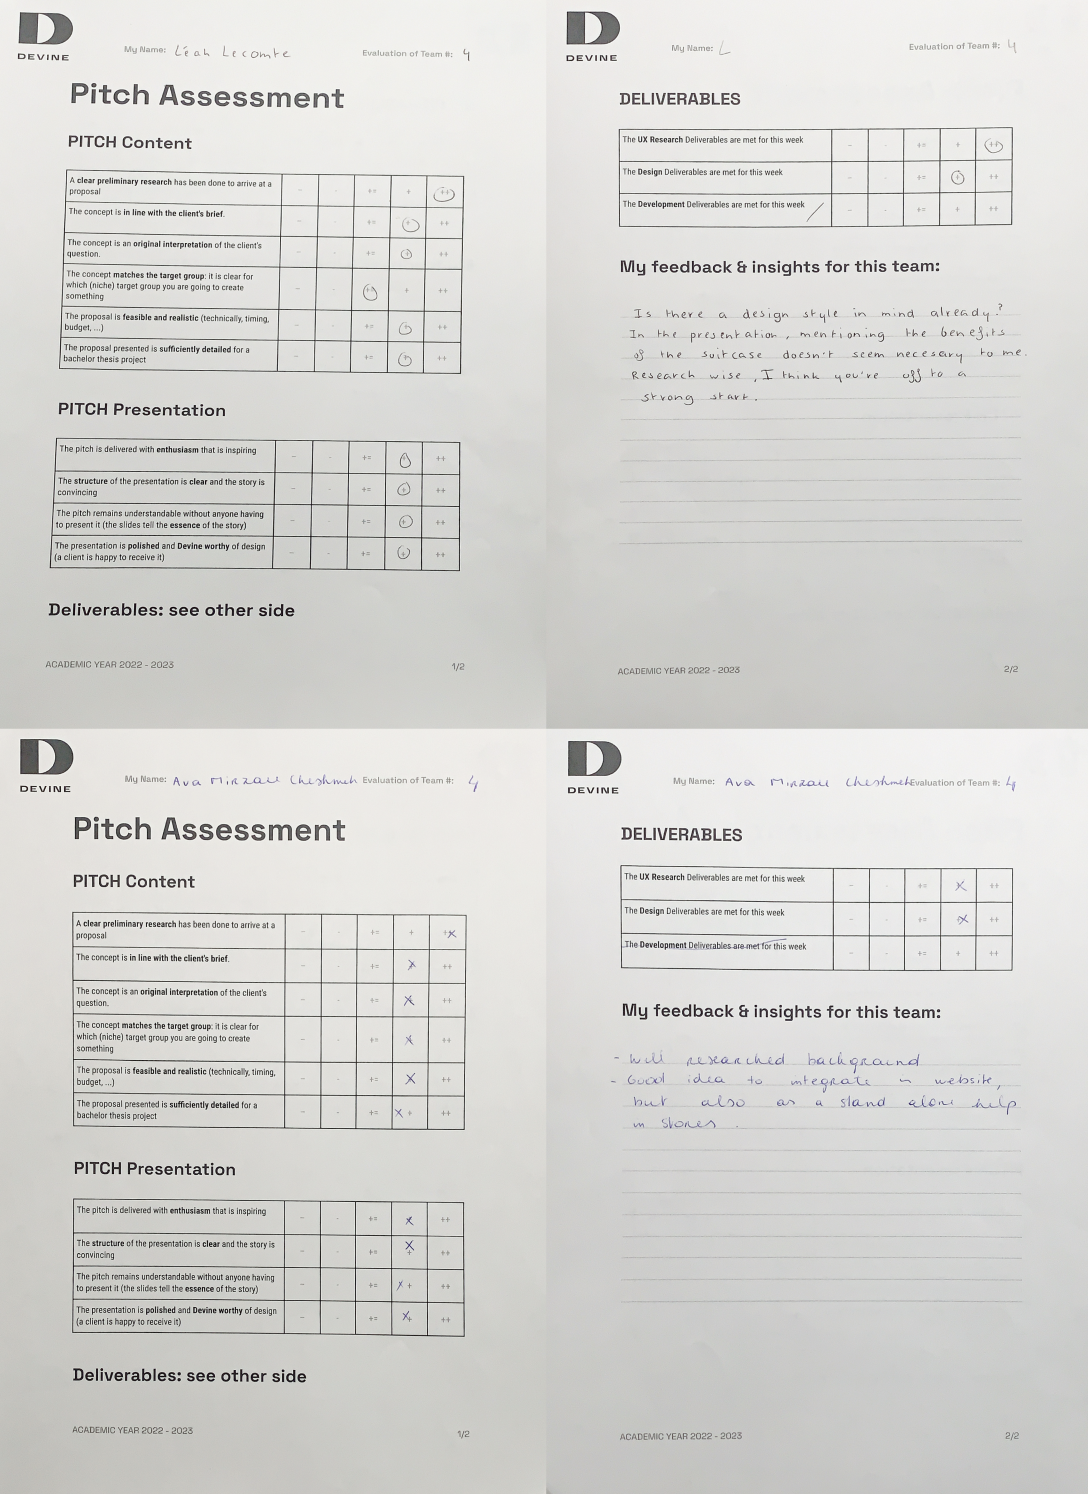 DEVINE
My Name: Léah Lecomte
Evaluation of Team #: 4
Pitch Assessment
PITCH Content
A clear preliminary research has been done to arrive at a
proposal
-- - +- + ++
The concept is in line with the client's brief.
-- - +- + ++
The concept is an original interpretation of the client's
question.
-- - +- + ++
The concept matches the target group: it is clear for
which (niche) target group you are going to create
something
-- - +- + ++
The proposal is feasible and realistic (technically, timing,
budget, ...)
-- - +- + ++
The proposal presented is sufficiently detailed for a
bachelor thesis project
-- - +- + ++
PITCH Presentation
The pitch is delivered with enthusiasm that is inspiring
-- - +- + ++
The structure of the presentation is clear and the story is
convincing
-- - +- + ++
The pitch remains understandable without anyone having
to present it (the slides tell the essence of the story)
-- - +- + ++
The presentation is polished and Devine worthy of design
(a client is happy to receive it)
-- - +- + ++
Deliverables: see other side
ACADEMIC YEAR 2022 - 2023
1/2
DEVINE
My Name: L
Evaluation of Team #: 4
DELIVERABLES
The UX Research Deliverables are met for this week
-- - +- + ++
The Design Deliverables are met for this week
-- - +- + ++
The Development Deliverables are met for this week
-- - +- + ++
My feedback & insights for this team:
Is there a design style in mind already?
In the presentation, mentioning the benefits
of the suitcase doesn't seem necesary to me.
Research wise, I think you're off to a
strong start.
ACADEMIC YEAR 2022 - 2023
2/2
DEVINE
My Name: Ava Mirzaii Cheshmeh
Evaluation of Team #: 4
Pitch Assessment
PITCH Content
A clear preliminary research has been done to arrive at a
proposal
-- - +- + +
The concept is in line with the client's brief.
-- - +- ++
The concept is an original interpretation of the client's
question.
-- - +- ++
The concept matches the target group: it is clear for
which (niche) target group you are going to create
something
-- - +- ++
The proposal is feasible and realistic (technically, timing,
budget, ...)
-- - +- ++
The proposal presented is sufficiently detailed for a
bachelor thesis project
-- - +- + ++
PITCH Presentation
The pitch is delivered with enthusiasm that is inspiring
-- - +- ++
The structure of the presentation is clear and the story is
convincing
-- - +- + ++
The pitch remains understandable without anyone having
to present it (the slides tell the essence of the story)
-- - +- + ++
The presentation is polished and Devine worthy of design
(a client is happy to receive it)
-- - +- + ++
Deliverables: see other side
ACADEMIC YEAR 2022 - 2023
1/2
DEVINE
My Name: Ava Mirzaii Cheshmeh
Evaluation of Team #: 4
DELIVERABLES
The UX Research Deliverables are met for this week
-- - +- ++
The Design Deliverables are met for this week
-- - +- ++
The Development Deliverables are met for this week
-- - +- + ++
My feedback & insights for this team:
- Well researched background
- Good idea to integrate in website,
but also as a stand alone help
in stores.
ACADEMIC YEAR 2022 - 2023
2/2